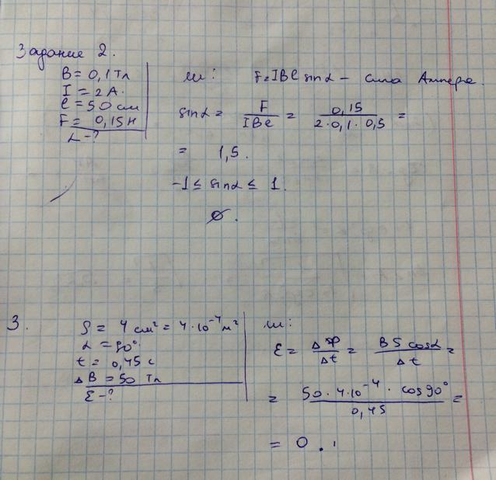 Задание 2.
B = 0,1 Тл
I = 2 А.
l = 50 см
F = 0,15 Н
α - ?
ш: F = IBl sinα - сила Ампера.
sinα = F / IBl = 0,15 / 2·0,1·0,5 =
= 1,5.
-1 ≤ sinα ≤ 1.
∅.
3.
S = 4 см² = 4·10⁻⁴ м²
α = 90°
t = 0,45 с
ΔB = 50 Тл
ε - ?
ш:
ε = ΔФ / Δt = BS cosα / Δt =
= 50·4·10⁻⁴·cos90° / 0,45 =
= 0.